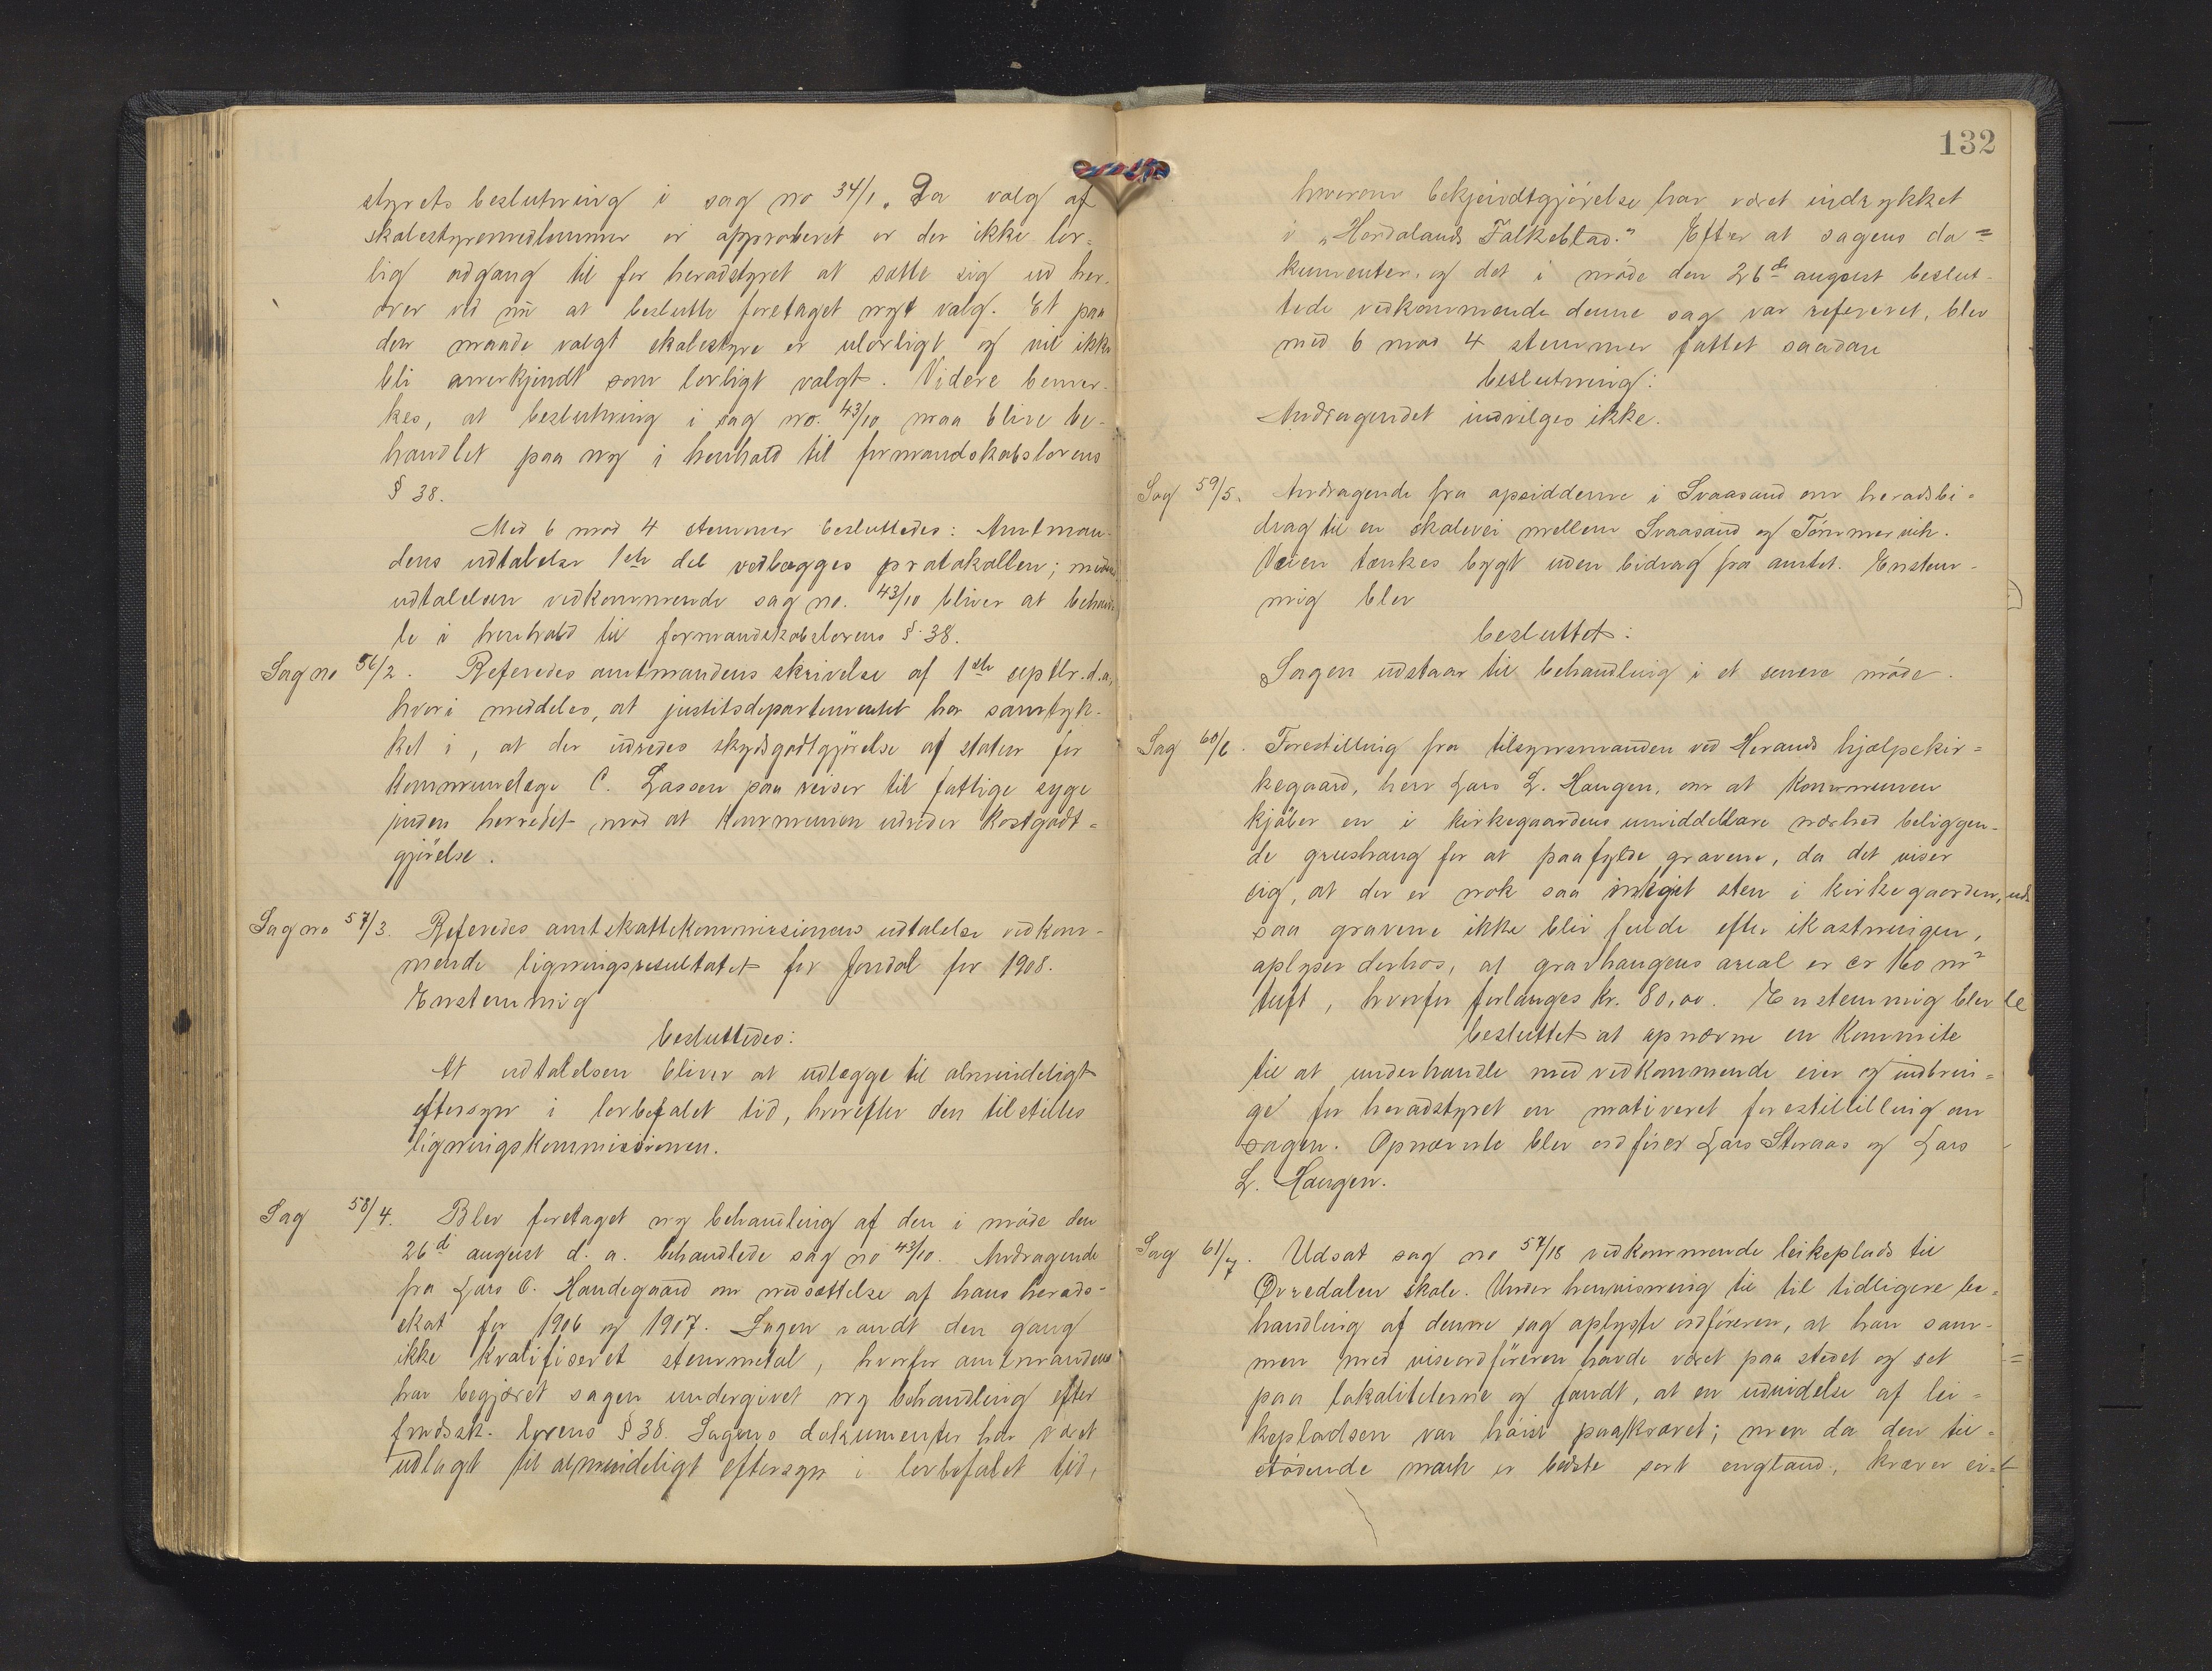 styrets beslutning i sag no 34/1. Da valg af
skolestyremedlemmer er approberet er der ikke lov-
lig adgang til for heradstyret at sætte sig ud her-
over ved nu at beslutte foretaget nyt valg. Et paa
den maade valgt skolestyre er ulovligt og vil ikke
bli anerkjendt som lovligt valgt. Videre bemer-
kes, at beslutning i sag no. 43/10 maa blive be-
handlet paa ny i henhold til formandskabslovens
§ 38.
Med 6 mod 4 stemmer besluttedes: Amtman-
dens udtalelse 1ste del vedlægges protokollen; medens
udtalelsen vedkommende sag no. 43/10 bliver at behand-
le i henhold til formandskabslovens § 38.
Sag no 56/2. Referedes amtmandens skrivelse af 1ste septbr. d.a,
hvori meddeles, at justitsdepartementet har samtyk-
ket i, at der udredes skydsgodtgjörelse af staten for
kommunelæge C. Lassen paa reiser til fattige syge
inden herredet mod at kommunen udreder kostgodt-
gjörelse.
Sag no 57/3. Referedes amtskattekommissionens udtalelse vedkom-
mende ligningsresultatet for Jondal for 1908.
Enstemmig
besluttedes:
At udtalelsen bliver at udlægge til almindeligt
eftersyn i lovbefalet tid, hvorefter den tilstilles
ligningskommissionen.
Sag 58/4. Blev foretaget ny behandling af den i möde den
26de august d. a. behandlede sag no 43/10. Andragende
fra Lars O. Handegaard om nedsættelse af hans herads-
skat for 1906 og 1907. Sagen vandt den gang
ikke kvalifiseret stemmetal, hvorfor amtmanden
har begjæret sagen undergivet ny behandling efter
fmdssk. lovens § 38. Sagens dokumenter har været
udlagt til almindeligt eftersyn i lovbefalet tid,
132
hvorom bekjendtgjörelse har været indrykket
i "Hordalands Folkeblad." Efter at sagens do=
kumenter, og det i möde den 26de august beslut-
tede vedkommende denne sag var refereret, blev
med 6 mod 4 stemmer fattet saadan
beslutning:
Andragendet indvilges ikke.
Sag 59/5. Andragende fra opsidderne i Svaasand om heradsbi=
drag til en skolevei mellem Svaasand og Tömmervik.
Veien tænkes bygt uden bidrag fra amtet. Enstem-
mig blev
besluttet:
Sagen udstaar til behandling i et senere möde.
Sag 60/6. Forestilling fra tilsynsmanden ved Herands hjælpekir=
kegaard, herr Lars L. Haugen, om at kommunen
kjöber en i kirkegaardens umiddelbare nærhed beliggen-
de grushaug for at paafylde gravene, da det viser
sig, at der er nok saa meget sten i kirkegaarden,
saa gravene ikke blir fulde efter ikastningen,
oplyser derhos, at gravhaugens areal er cr 160 m²
tuft, hvorfor forlanges kr. 80,00. Enstemmig blev
besluttet at opnævne en komite
til at underhandle med vedkommende eier og indbrin=
ge for heradstyret en motiveret forestillilling om
sagen. Opnævnte blev ordförer Lars Steraas og Lars
L. Haugen.
Sag 61/7. Udsat sag no 57/18 vedkommende leikeplads til
Øvredalen skole. Under henvisning til til tidligere be=
handling af denne sag oplyste ordföreren, at han sam-
men med viseordföreren havde været paa stedet og set
paa lokaliteterne og fandt, at en udvidelse af lei=
kepladsen var höist paakrævet; men da den til=
stödende mark er bedste sort england, kræver ei=